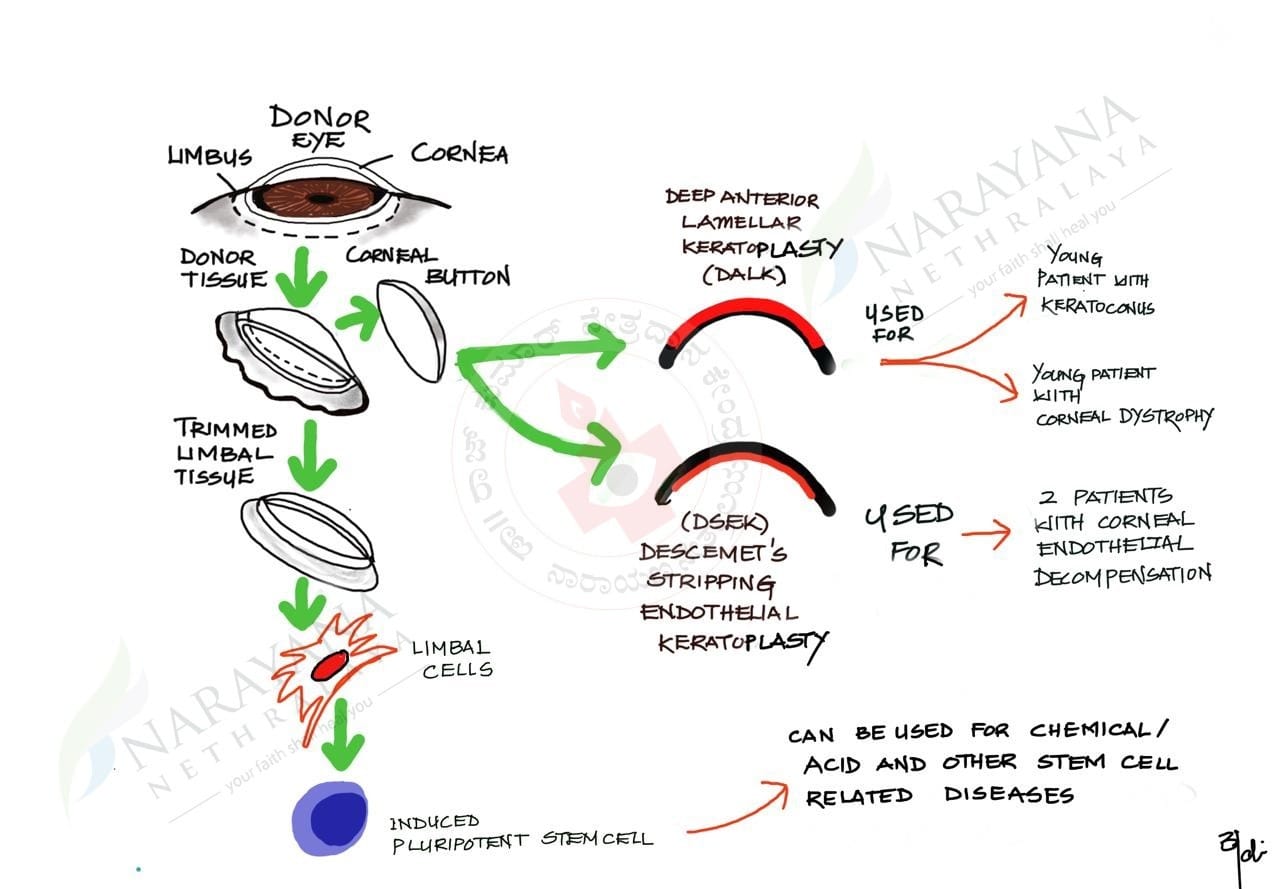 DONOR
EYE
LIMBUS
CORNEA
DONOR
TISSUE
CORNEAL
BUTTON
TRIMMED
LIMBAL
TISSUE
LIMBAL
CELLS
INDUCED
PLURIPOTENT STEM CELL
DEEP ANTERIOR
LAMELLAR
KERATOPLASTY
(DALK)
USED
FOR
YOUNG
PATIENT WITH
KERATOCONUS
YOUNG PATIENT
WITH
CORNEAL DYSTROPHY
(DSEK)
DESCEMET'S
STRIPPING
ENDOTHELIAL
KERATOPLASTY
USED
FOR
2 PATIENTS
WITH CORNEAL
ENDOTHELIAL
DECOMPENSATION
CAN BE USED FOR CHEMICAL/
ACID AND OTHER STEM CELL
RELATED DISEASES
NARAYANA
NETHRALAYA
your faith shall heal you
NARAYANA
NETHRALAYA
your faith shall heal you